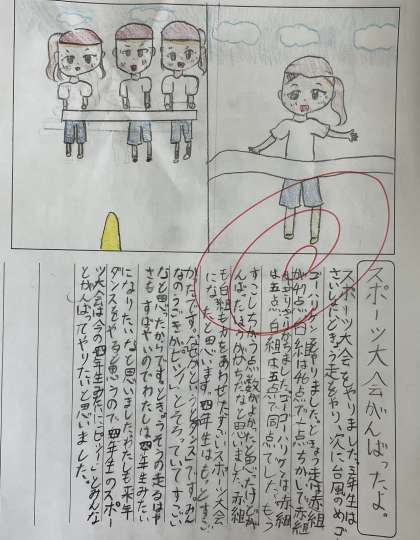 スポーツ大会がんばったよ。
スポーツ大会をやりました。3年生は
さいしょにときょう走をやり、次に台風のめゴー
ゴーハリケーンをやりました。ときょう走は赤組
が47点白組は46点で一点ちがいで赤組
がかちました。ゴーゴーハリケーンは赤組
は五点白組は五点で同点でした。もう
すこしちがう点数がよかったと思ったけどが
んばったほうがかちだなと思いました。赤組
も白組も力をあわせたすごいスポーツ大会
になったと思います。四年生はもっとすご
かたです。なぜかというとダンスですみん
なのうごきがビシッとそろっていてすごい
なと思ったからです。ときょうそうの走るはや
さもすばやいのでわたしは四年生みたい
になりたいなと思いました。わたしも来年
ダンスをやると思うので四年生のスポー
ツ大会は今の四年生みたいにビシッ！とみんな
とがんばってやりたいと思いました。